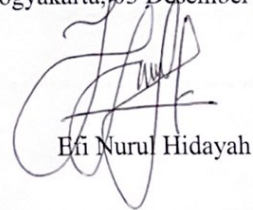 ogyakarta, 05 Desember
Efi Nurul Hidayah